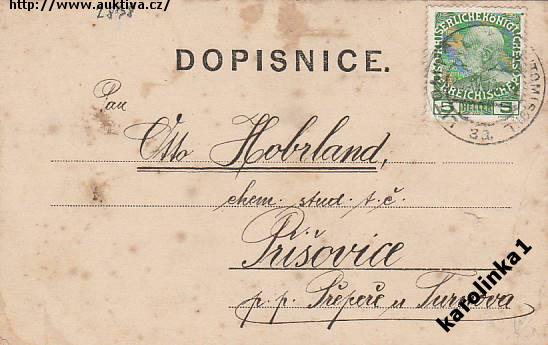 www.auktiva.cz/
DOPISNICE.
KAISERLICHE KÖNIGLICHE
ÖSTERREICHISCHE
5 HELLER 5
Pan
Otto Hobrland,
chem. stud. t. č.
Příšovice
p. p. Přepeře u Turnova
karolinka1